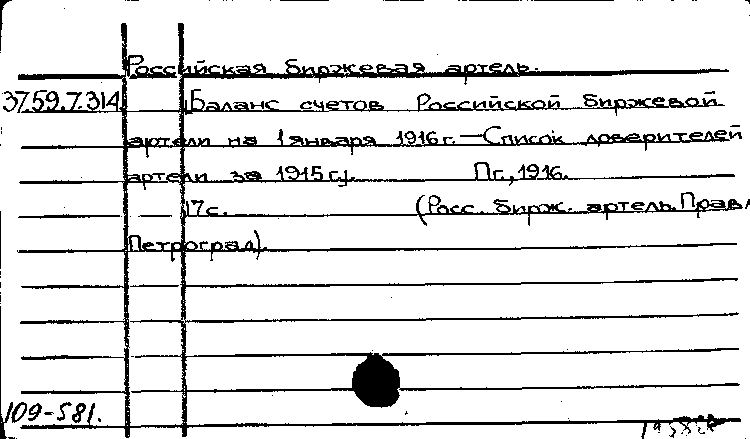 Российская биржевая артель.
37.59.7.314 [Баланс счетов Российской биржевой
артели на 1 января 1916 г. — Список доверителей
артели за 1915 г.]. Пг., 1916.
17 с. (Росс. бирж. артель. Правл
Петроград).
109-581.